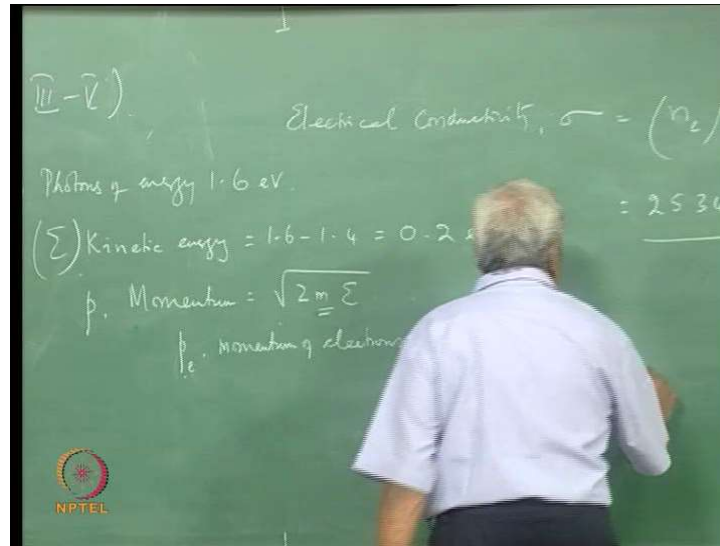 III-V).
Electrical Conductivity, σ = (n
= 2530
Photons of energy 1.6 eV.
(Σ) Kinetic energy = 1.6-1.4 = 0.2
p. Momentum = √2mΣ
pe. Momentum of electrons
NPTEL